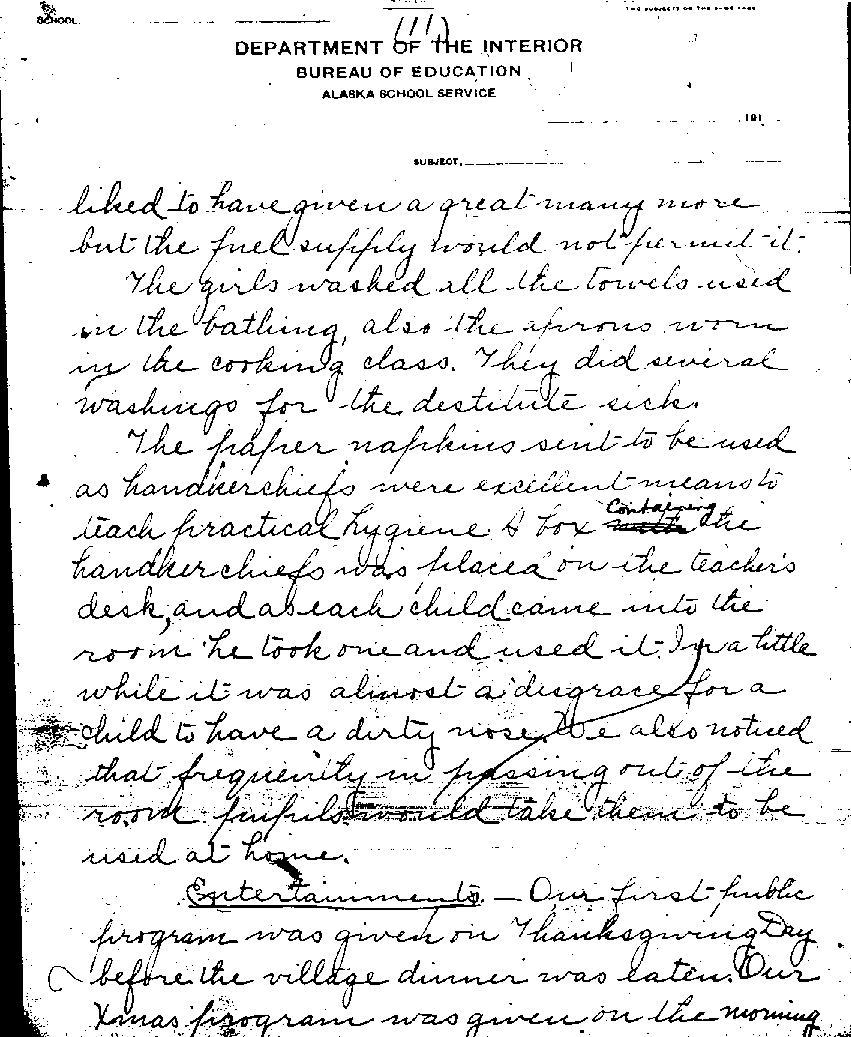 SCHOOL.
THE SUBJECTS ON THE SAME PAGE
(11)
DEPARTMENT OF THE INTERIOR
BUREAU OF EDUCATION
ALASKA SCHOOL SERVICE
191
SUBJECT,
liked to have given a great many more
but the fuel supply would not permit it.
The girls washed all the towels used
in the bathing, also the aprons worn
in the cooking class. They did several
washings for the destitute sick.
The paper napkins sent to be used
as handkerchiefs were excellent means to
teach practical hygiene. A box containing the
handkerchiefs was placed on the teacher's
desk, and as each child came into the
room he took one and used it. In a little
while it was almost a disgrace for a
child to have a dirty nose. We also noticed
that frequently in passing out of the
room pupils would take them to be
used at home.
Entertainments. — Our first public
program was given on Thanksgiving Day
before the village dinner was eaten. Our
Xmas program was given on the morning